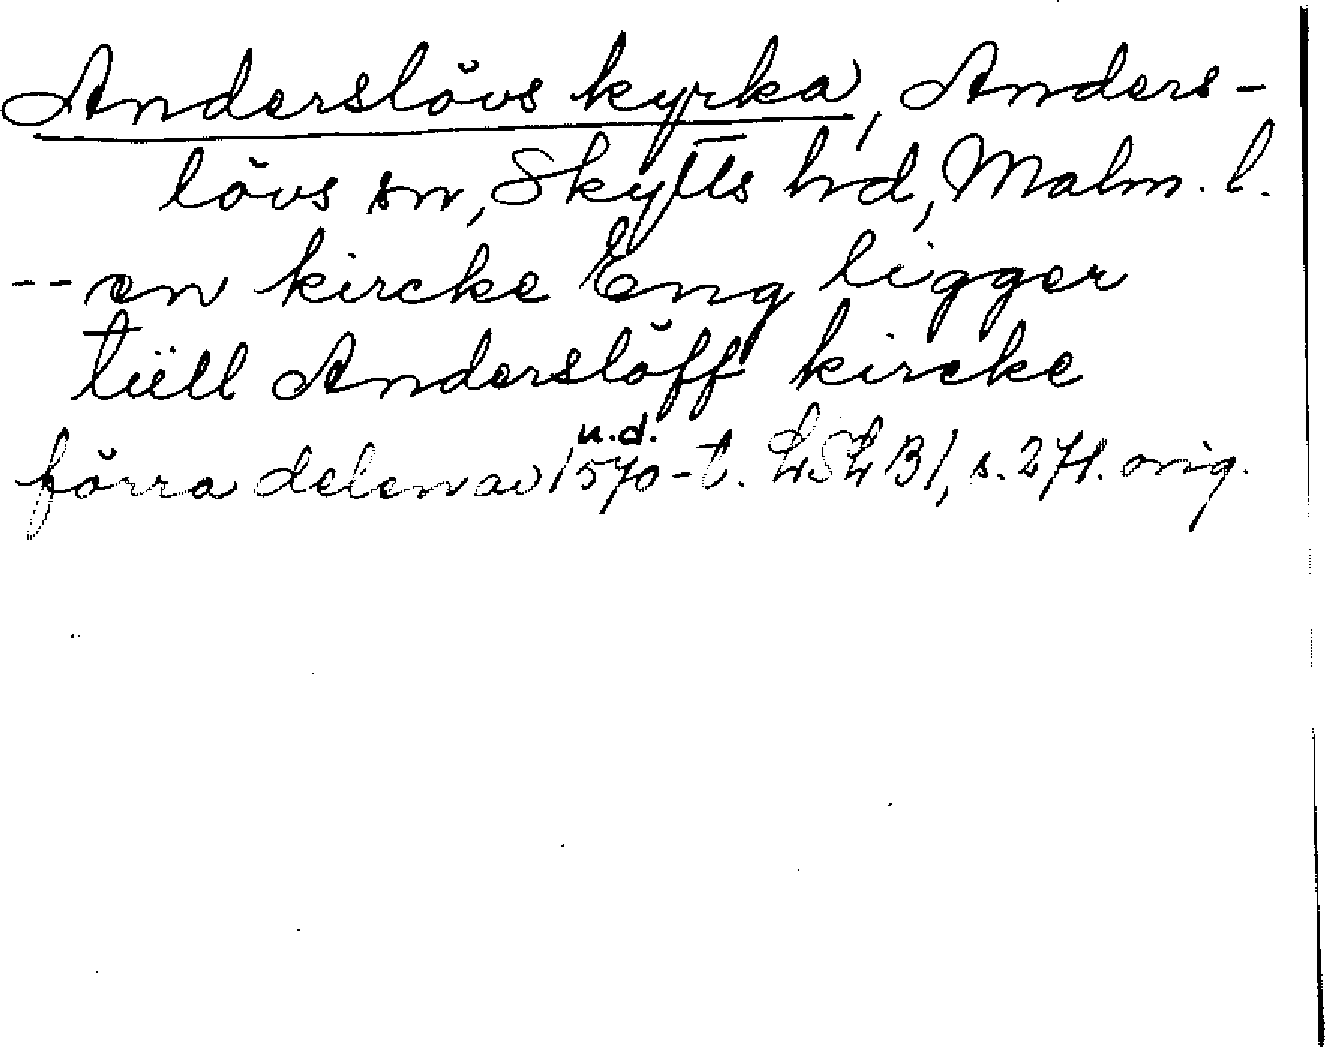 Anderslövs kyrka, Anders-
lövs sn, Skytts hd, Malm. l.
-- en kircke Eng ligger
tiill Anderslöff kircke
u.d.
förra delen av 1570-t. LSL B1, s. 271. orig.